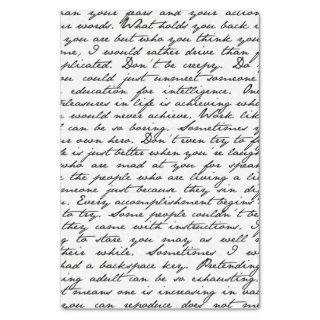 than your fears and your action
r words. What holds you back
you are but who you think you
me, I would rather drive than
plicated. Don't be creepy. Do
u could just unmeet someone
education for intelligence. One
pleasures in life is achieving wh
would never achieve. Work lik
can be so boring. Sometimes y
ur own hero. Don't even try to f
le is just better when you're laugh
who are mad at you for speak
e the people who are living a li
meone just because they sin di
u. Every accomplishment begins
to try. Some people couldn't be
they came with instructions. I
g to stare you may as well
their while. Sometimes I w
had a backspace key. Pretending
ing adult can be so exhausting.
t means one is increasing in a
you can reproduce does not me